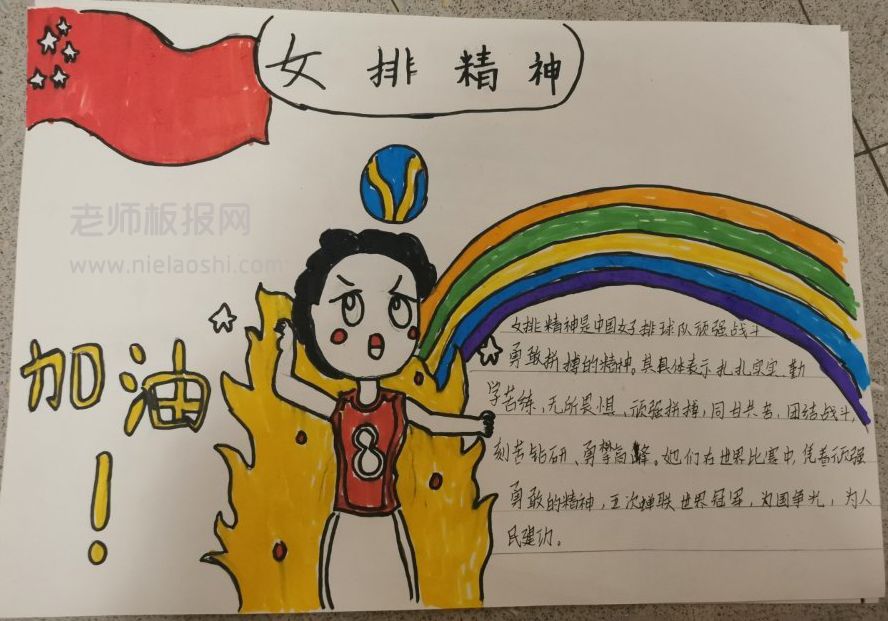 女排精神
老师板报网
www.nielaoshi.com
加油！
8
女排精神是中国女子排球队顽强战斗
勇敢拼搏的精神。其具体表示扎扎实实、勤
学苦练、无所畏惧、顽强拼搏、同甘共苦、团结战斗、
刻苦钻研、勇攀高峰。她们在世界比赛中，凭着顽强
勇敢的精神，五次蝉联世界冠军，为国争光，为人
民建功。